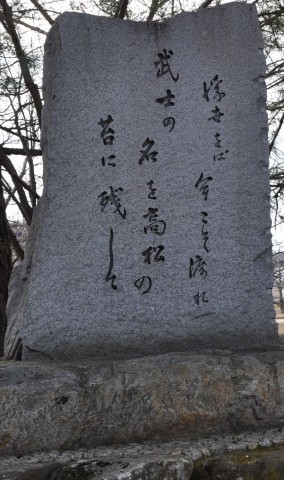 浮世をば今こそ渡れ
武士の名を高松の
苔に残して